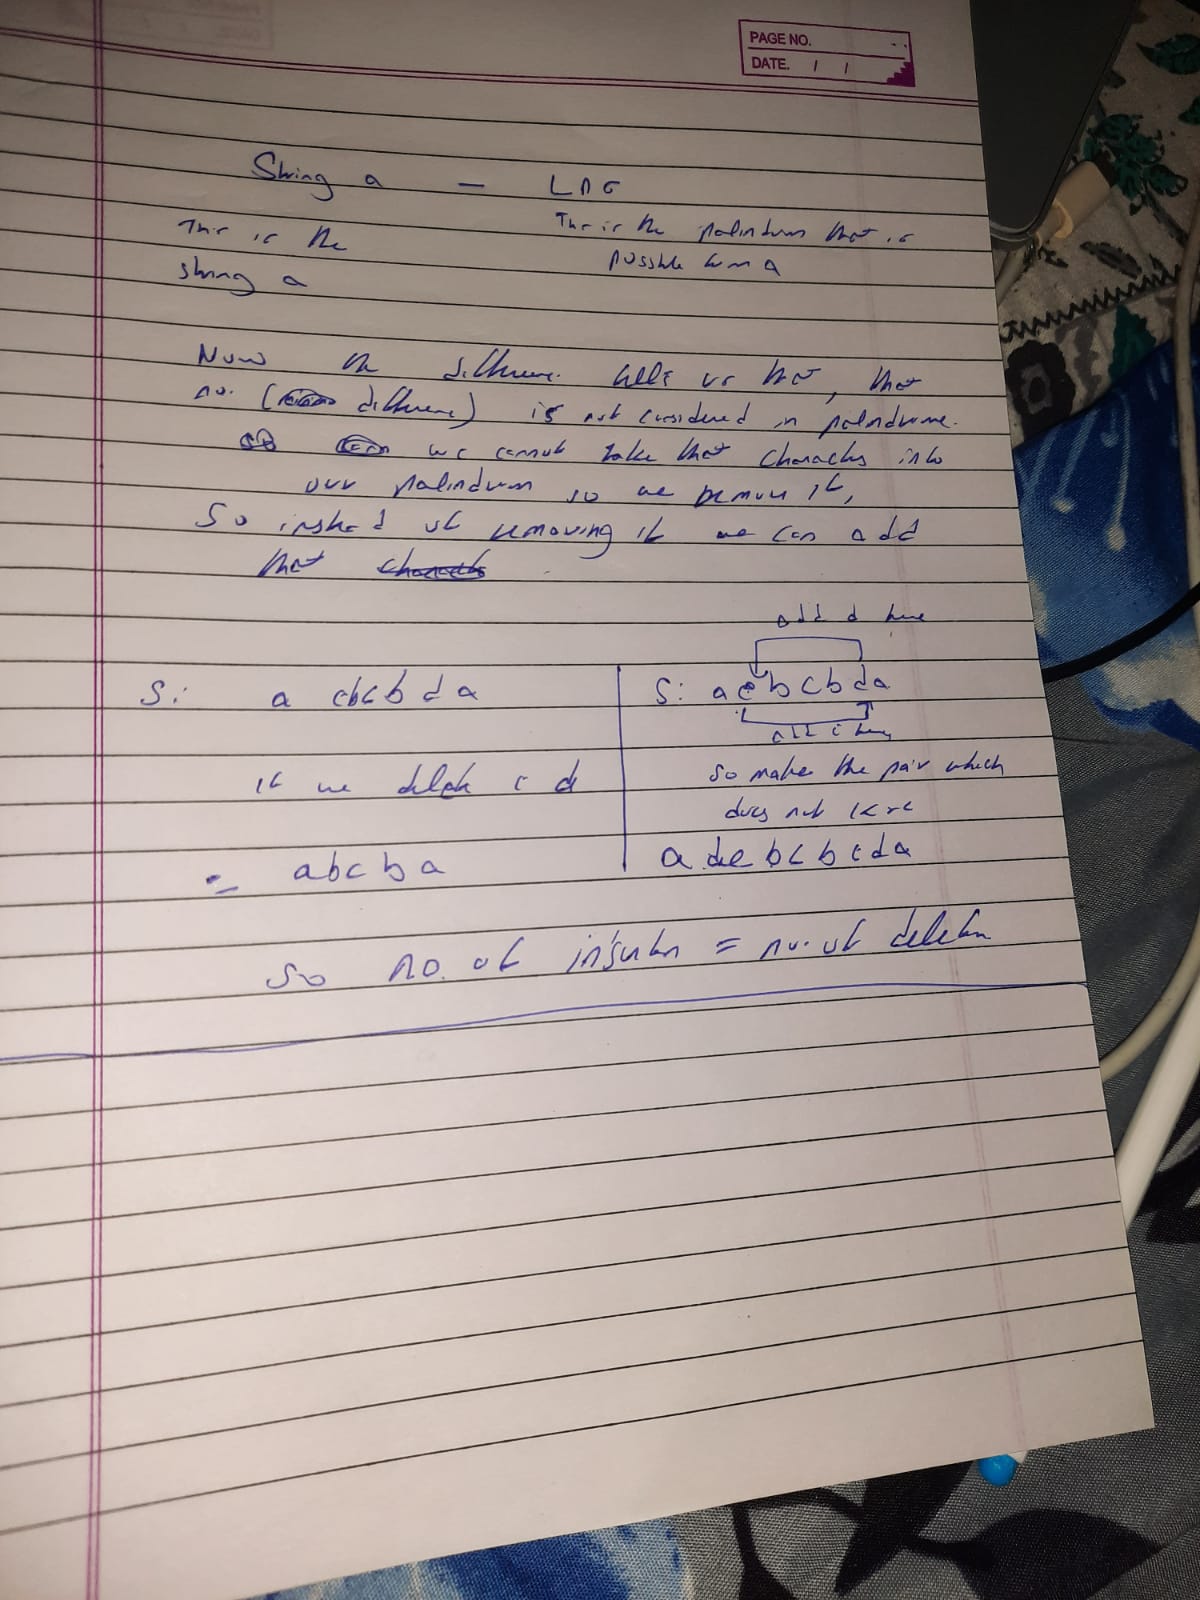 PAGE NO.
DATE. / /
String a - LPS
This is the
string a
This is the palindrum that is
possible from a
Now the difference tells us that, that
no. (difference) is not considered in palindrome.
so we cannot take that characters into
our palindrum so we remove it,
So instead of removing it we can add
that
add d here
S: a cbcb d a
S: a e b c b d a
add c here
if we delete c d
so make the pair which
does not
= abcb a
a d e b c b c d a
So no. of insertn = no. of deletn